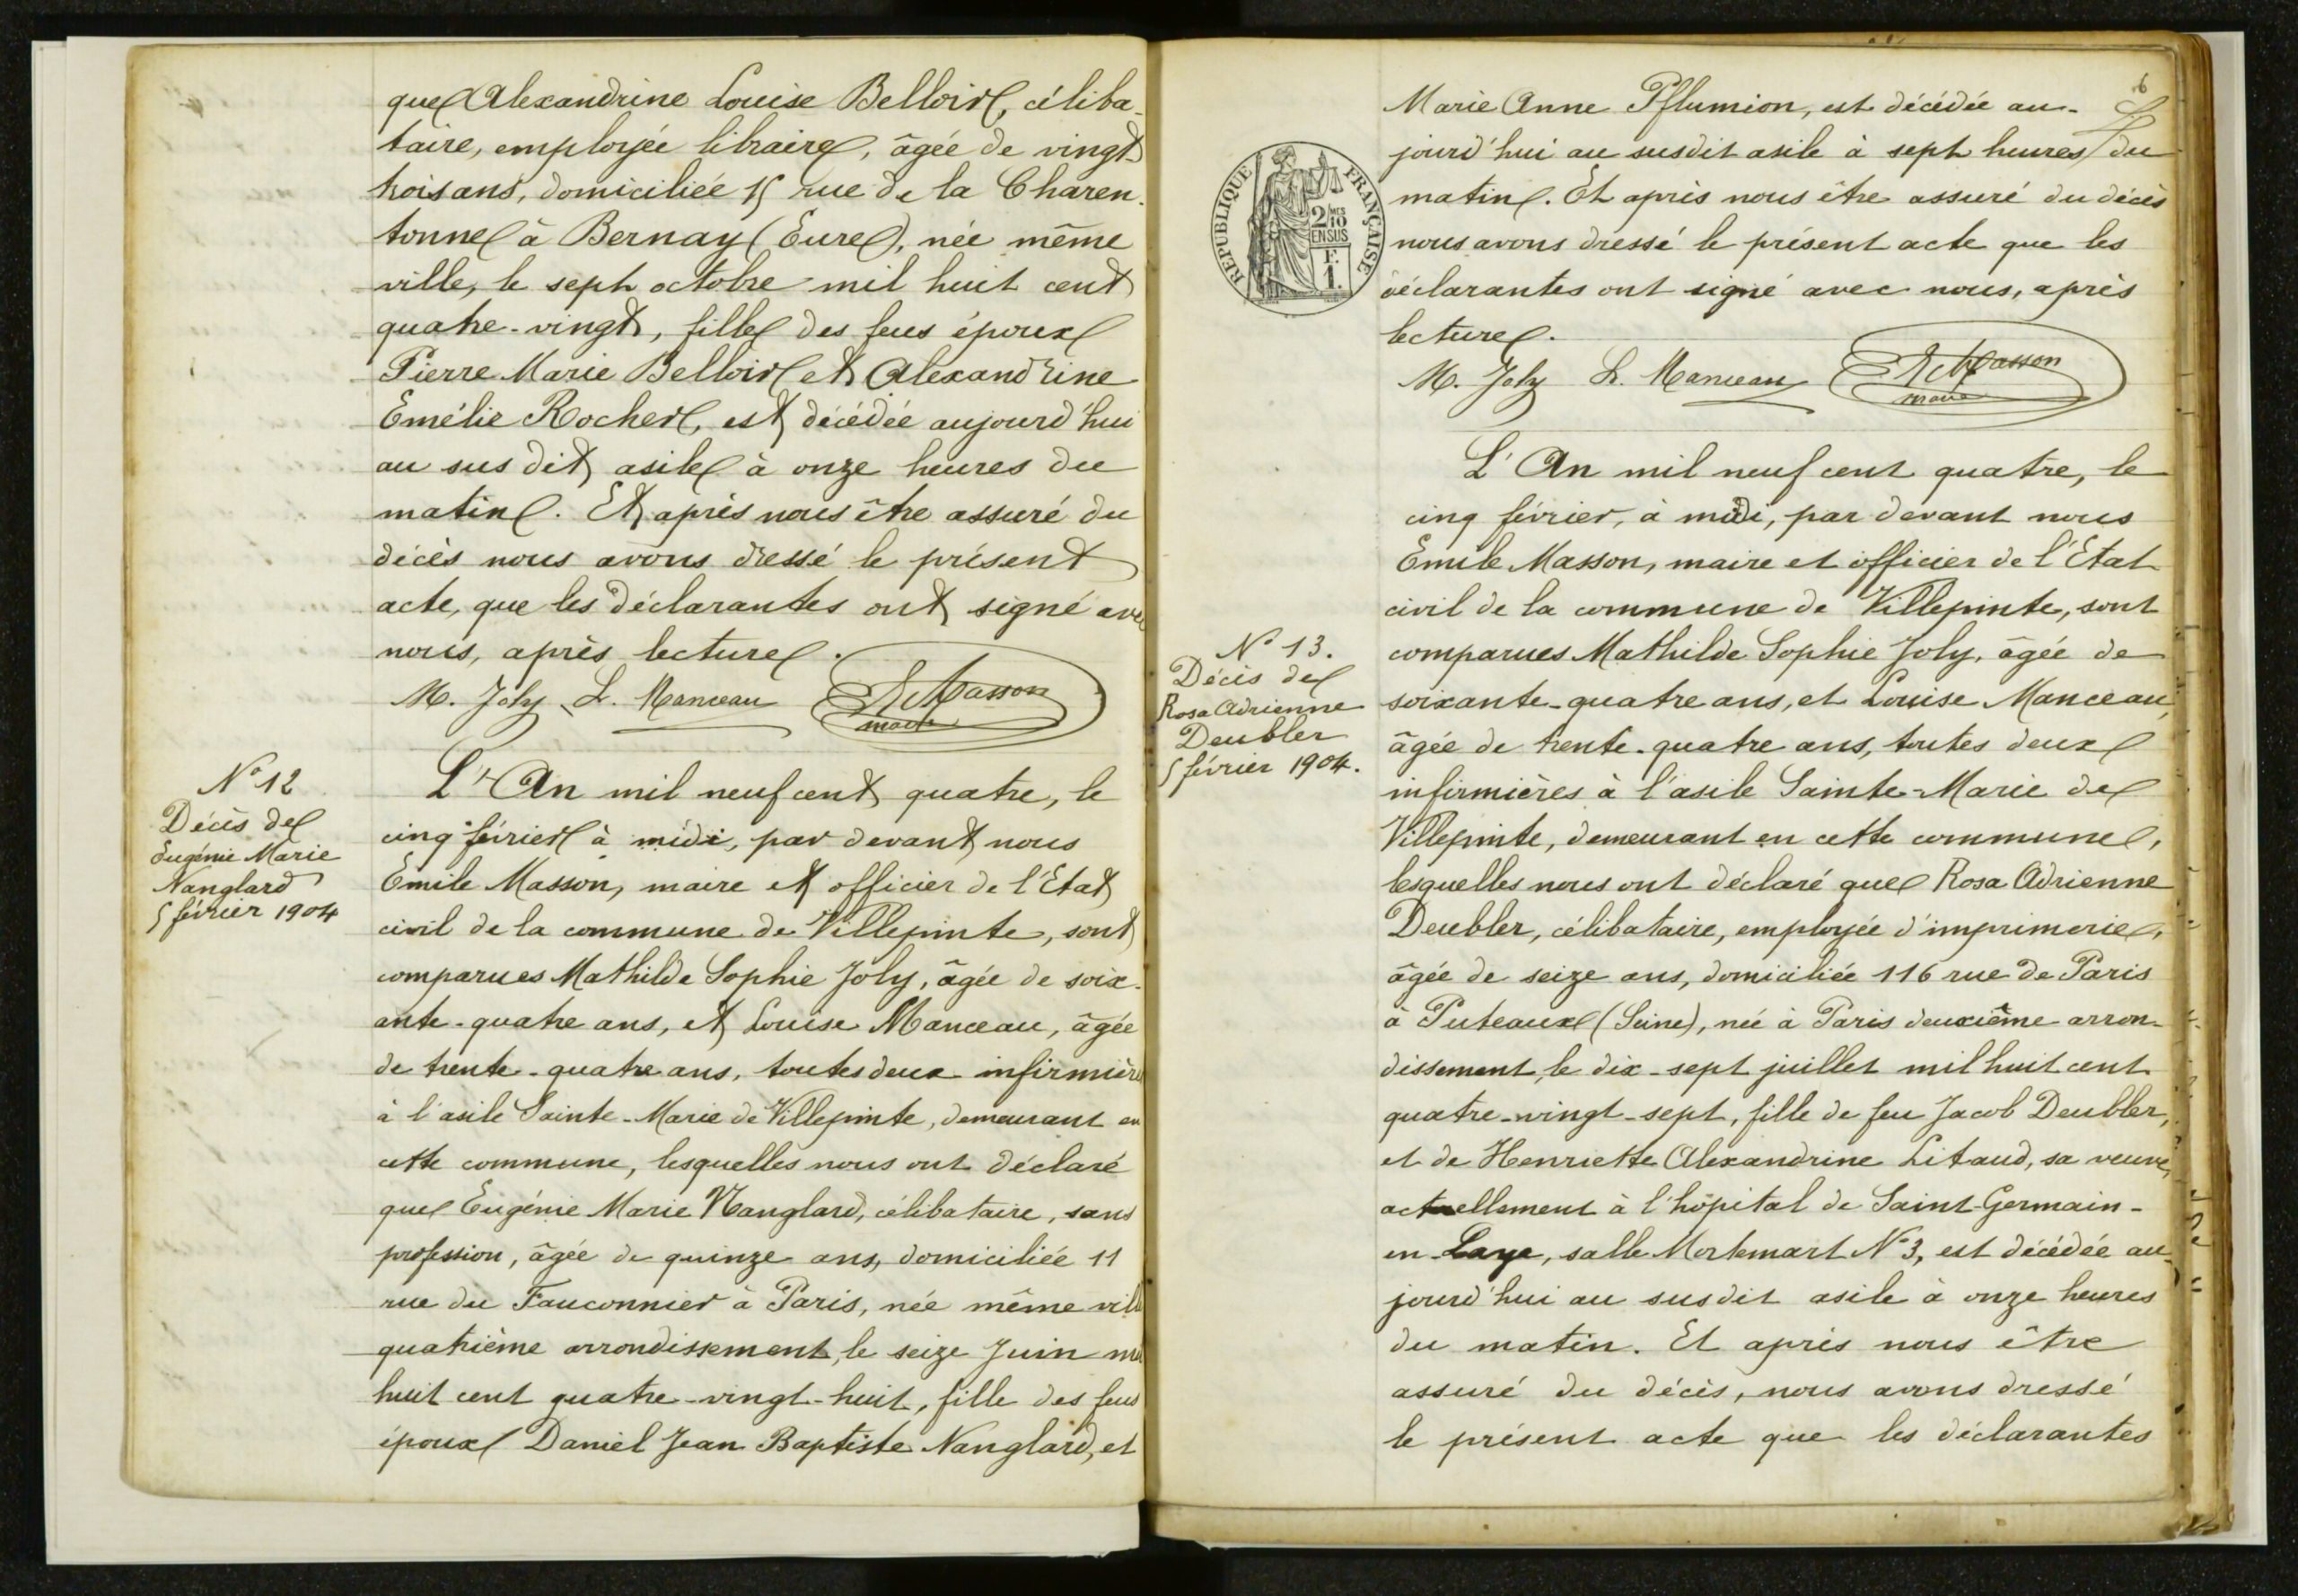 que Alexandrine Louise Belloir, céliba-
taire, employée libraire, âgée de vingt-
trois ans, domiciliée 15 rue de la Charen-
tonne à Bernay (Eure), née même
ville, le sept octobre mil huit cent
quatre-vingt, fille des feus époux
Pierre Marie Belloir et Alexandrine
Emélie Rocher, est décédée aujourd'hui
au sus dit asile à onze heures du
matin. Et après nous être assuré du
décès nous avons dressé le présent
acte, que les déclarantes ont signé avec
nous, après lecture.
M. Joly L. Manceau E Masson
maire
N° 12
Décès de
Eugénie Marie
Nanglard
5 février 1904
L'An mil neuf cent quatre, le
cinq février à midi, par devant nous
Emile Masson, maire et officier de l'Etat
civil de la commune de Villepinte, sont
comparues Mathilde Sophie Joly, âgée de soix-
ante-quatre ans, et Louise Manceau, âgée
de trente-quatre ans, toutes deux infirmières
à l'asile Sainte-Marie de Villepinte, demeurant en
cette commune, lesquelles nous ont déclaré
que Eugénie Marie Nanglard, célibataire, sans
profession, âgée de quinze ans, domiciliée 11
rue du Fauconnier à Paris, née même ville
quatrième arrondissement, le seize Juin mil
huit cent quatre-vingt-huit, fille des feus
époux Daniel Jean Baptiste Nanglard, et
6
Marie Anne Pflumion, est décédée au-
jourd'hui au susdit asile à sept heures du
matin. Et après nous être assuré du décès
nous avons dressé le présent acte que les
déclarantes ont signé avec nous, après
lecture.
RÉPUBLIQUE FRANÇAISE
2/10 MES
EN SUS
F.
1.
M. Joly L. Manceau E Masson
maire
N° 13.
Décès de
Rosa Adrienne
Deubler
5 février 1904.
L'An mil neuf cent quatre, le
cinq février, à midi, par devant nous
Emile Masson, maire et officier de l'Etat
civil de la commune de Villepinte, sont
comparues Mathilde Sophie Joly, âgée de
soixante-quatre ans, et Louise Manceau,
âgée de trente-quatre ans, toutes deux
infirmières à l'asile Sainte-Marie de
Villepinte, demeurant en cette commune,
lesquelles nous ont déclaré que Rosa Adrienne
Deubler, célibataire, employée d'imprimerie,
âgée de seize ans, domiciliée 116 rue de Paris
à Puteaux (Seine), née à Paris deuxième arron-
dissement, le dix-sept juillet mil huit cent
quatre-vingt-sept, fille de feu Jacob Deubler,
et de Henriette Alexandrine Litaud, sa veuve,
actuellement à l'hôpital de Saint-Germain-
en-Laye, salle Mortemart N° 3, est décédée au-
jourd'hui au susdit asile à onze heures
du matin. Et après nous être
assuré du décès, nous avons dressé
le présent acte que les déclarantes